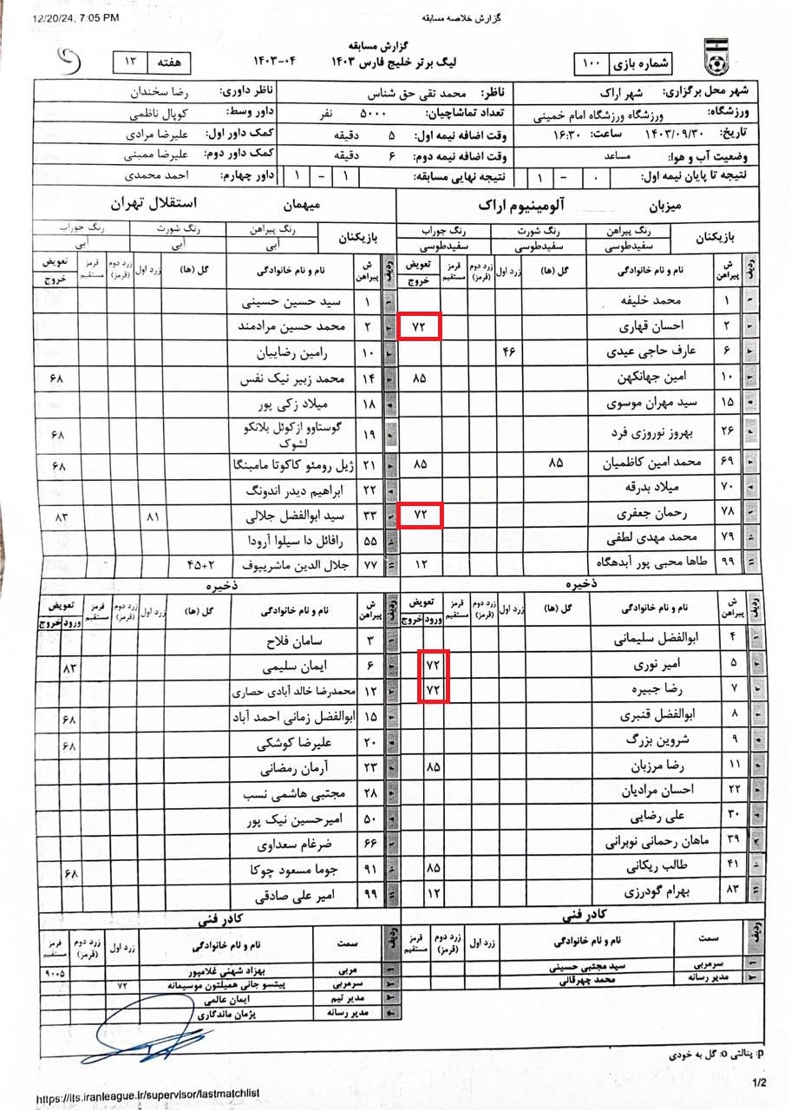 12/20/24, 7:05 PM
گزارش خلاصه مسابقه
گزارش مسابقه
شماره بازی ۱۰۰
لیگ برتر خلیج فارس ۱۴۰۳ ۱۴۰۳-۰۴
هفته ۱۳
شهر محل برگزاری: شهر اراک ناظر: محمد تقی حق شناس ناظر داوری: رضا سخندان
ورزشگاه: ورزشگاه ورزشگاه امام خمینی تعداد تماشاچیان: ۵۰۰۰ نفر داور وسط: کوپال ناظمی
تاریخ: ۱۴۰۳/۰۹/۳۰ ساعت: ۱۶:۳۰ وقت اضافه نیمه اول: ۵ دقیقه کمک داور اول: علیرضا مرادی
وضعیت آب و هوا: مساعد وقت اضافه نیمه دوم: ۶ دقیقه کمک داور دوم: علیرضا ممبنی
نتیجه تا پایان نیمه اول: ۰ - ۱ نتیجه نهایی مسابقه: ۱ - ۱ داور چهارم: احمد محمدی
میزبان آلومینیوم اراک میهمان استقلال تهران
بازیکنان رنگ پیراهن رنگ شورت رنگ جوراب بازیکنان رنگ پیراهن رنگ شورت رنگ جوراب
سفیدطوسی سفیدطوسی سفیدطوسی آبی آبی آبی
ردیف ش پیراهن نام و نام خانوادگی گل (ها) زرد اول زرد دوم (قرمز) قرمز مستقیم تعویض خروج ردیف ش پیراهن نام و نام خانوادگی گل (ها) زرد اول زرد دوم (قرمز) قرمز مستقیم تعویض خروج
۱ محمد خلیفه ۱ سید حسین حسینی
۲ احسان قهاری ۷۲ ۲ محمد حسین مرادمند
۶ عارف حاجی عیدی ۴۶ ۱۰ رامین رضاییان
۱۰ امین جهانکهن ۸۵ ۱۴ محمد زبیر نیک نفس ۶۸
۱۵ سید مهران موسوی ۱۸ میلاد زکی پور
۲۶ بهروز نوروزی فرد ۱۹ گوستاوو ازکوئل بلانکو لشوک ۶۸
۶۹ محمد امین کاظمیان ۸۵ ۸۵ ۲۱ ژیل رومئو کاکوتا مامبنگا ۶۸
۷۰ میلاد بدرقه ۲۲ ابراهیم دیدر اندونگ
۷۸ رحمان جعفری ۷۲ ۳۳ سید ابوالفضل جلالی ۸۱ ۸۳
۷۹ محمد مهدی لطفی ۵۵ رافائل دا سیلوا آرودا
۹۹ طاها محبی پور آبدهگاه ۱۲ ۷۷ جلال الدین ماشریپوف ۴۵+۲
ذخیره ذخیره
ردیف ش پیراهن نام و نام خانوادگی گل (ها) زرد اول زرد دوم (قرمز) قرمز مستقیم تعویض ورود خروج ردیف ش پیراهن نام و نام خانوادگی گل (ها) زرد اول زرد دوم (قرمز) قرمز مستقیم تعویض ورود خروج
۴ ابوالفضل سلیمانی ۳ سامان فلاح
۵ امیر نوری ۷۲ ۶ ایمان سلیمی ۸۳
۷ رضا جبیره ۷۲ ۱۲ محمدرضا خالد آبادی حصاری
۸ ابوالفضل قنبری ۱۵ ابوالفضل زمانی احمد آباد ۶۸
۹ شروین بزرگ ۲۰ علیرضا کوشکی ۶۸
۱۱ رضا مرزبان ۸۵ ۲۳ آرمان رمضانی
۲۲ احسان مرادیان ۲۸ مجتبی هاشمی نسب
۳۰ علی رضایی ۵۰ امیرحسین نیک پور
۳۹ ماهان رحمانی نوبرانی ۶۶ ضرغام سعداوی
۴۱ طالب ریکانی ۸۵ ۹۱ جوما مسعود چوکا ۶۸
۸۳ بهرام گودرزی ۱۲ ۹۹ امیر علی صادقی
کادر فنی کادر فنی
ردیف سمت نام و نام خانوادگی زرد اول زرد دوم (قرمز) قرمز مستقیم ردیف سمت نام و نام خانوادگی زرد اول زرد دوم (قرمز) قرمز مستقیم
۱ سرمربی سید مجتبی حسینی ۱ مربی بهزاد شهنی غلامپور ۹۰+۵
۲ مدیر رسانه محمد چهرقانی ۲ سرمربی پیتسو جانی همیلتون موسیمانه ۷۲
۳ مدیر تیم ایمان عالمی
۴ مدیر رسانه پژمان ماندگاری
p: پنالتی o: گل به خودی
https://its.iranleague.ir/supervisor/lastmatchlist
1/2